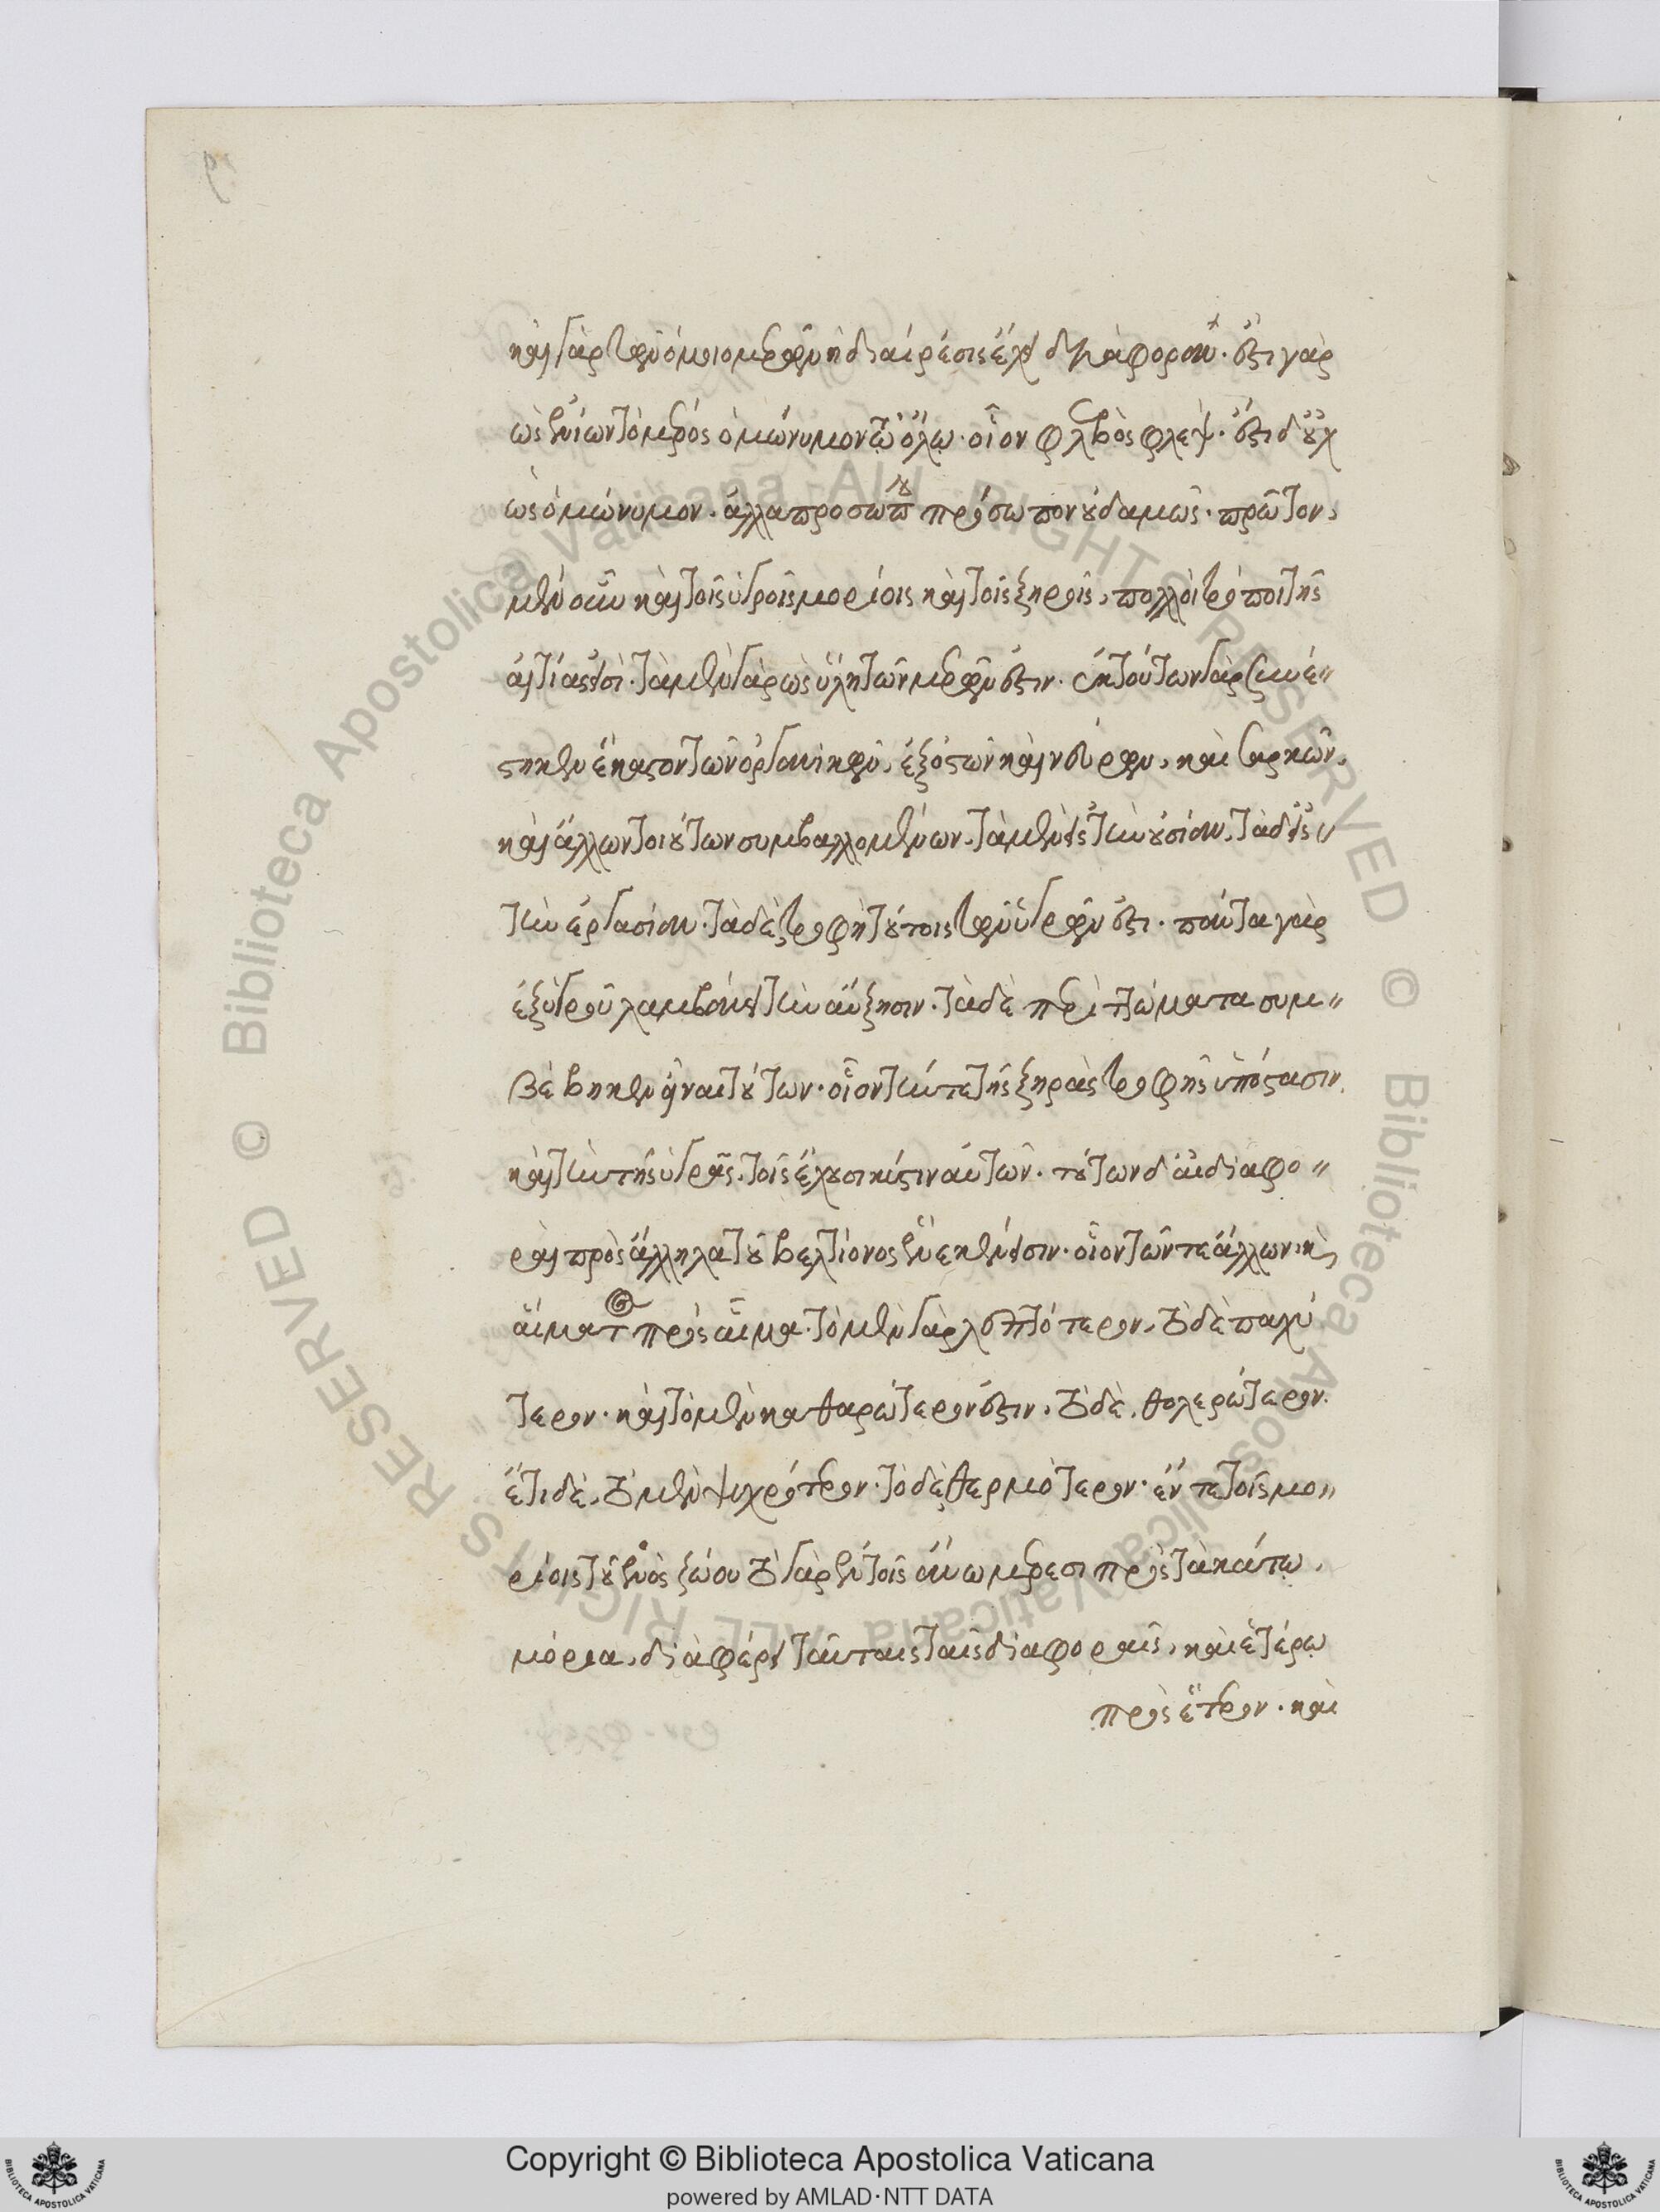 καὶ γὰρ τῶν ὁμοιομερῶν ἡ διαίρεσις ἔχει διὰφοράν. ἔστι γὰρ
ὡς ἐνίων τὸ μέρος ὁμώνυμον τῷ ὅλῳ. οἷον φλεβὸς φλέψ. ἔστι δ' οὐχ
ὡς ὁμώνυμον. ἀλλὰ προσώπου πρόσωπον οὐδαμῶς. πρῶτον,
μὲν οὖν καὶ τοῖς ὑγροῖς μορίοις καὶ τοῖς ξηροῖς, πολλοὶ τρόποι τῆς
αἰτίας εἰσί. τὰ μὲν γὰρ ὡς ὕλη τῶν μερῶν ἐστιν. ἐκ τούτων γὰρ συνέ〃
στηκεν ἕκαστον τῶν ὀργανικῶν, ἐξ ὀστῶν καὶ νεύρων, καὶ σαρκῶν,
καὶ ἄλλων τοιούτων συμβαλλομένων. τὰ μὲν εἰς τὴν οὐσίαν, τὰ δ' εἰς〃
τὴν ἐργασίαν. τὰ δὲ, τροφὴ τούτοις τῶν ὑγρῶν ἐστι. πάντα γὰρ
ἐξ ὑγροῦ λαμβάνει τὴν αὔξησιν. τὰ δὲ περιττώματα συμ〃
βέβηκεν εἶναι τούτων. οἷον τήν τε τῆς ξηρᾶς τροφῆς ὑπόστασιν,
καὶ τὴν τῆς ὑγρᾶς, τοῖς ἔχουσι κύστιν αὐτῶν. τούτων δ' αἱ διαφο〃
ραὶ πρὸς ἄλληλα τοῦ βελτίονος ἕνεκέν εἰσιν. οἷον τῶν τε ἄλλων καὶ
αἵματος πρὸς αἷμα. τὸ μὲν γὰρ λεπτότερον, τὸ δὲ παχύ
τερον. καὶ τὸ μὲν καθαρώτερόν ἐστιν, τὸ δὲ, θολερώτερον.
ἔτι δὲ, τὸ μὲν ψυχρότερον. τὸ δὲ, θερμότερον. ἔν τε τοῖς μο〃
ρίοις τοῦ ἑνὸς ζώου τὸ γὰρ ἐν τοῖς ἄνω μέρεσι πρὸς τὰ κάτω,
μόρια, διὰφέρει ταύταις ταῖς διαφοραῖς, καὶ ἑτέρῳ
πρὸς ἕτερον. καὶ
Copyright © Biblioteca Apostolica Vaticana
powered by AMLAD·NTT DATA